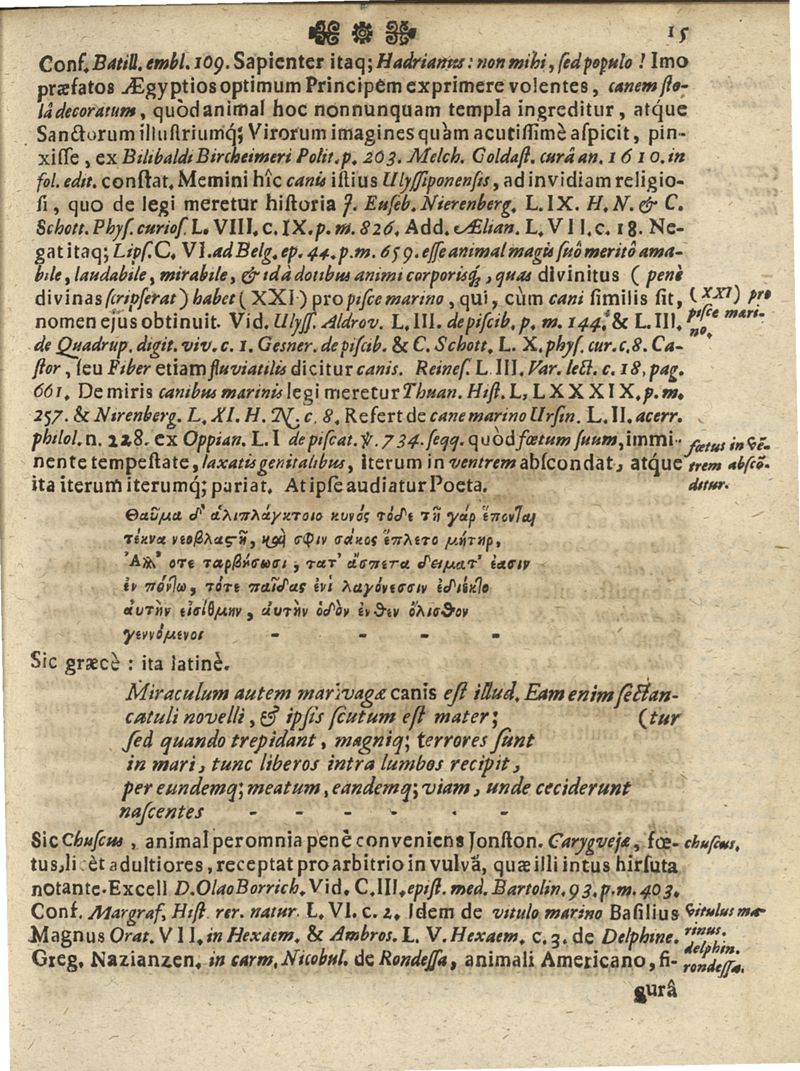 15
Conf. Batill. embl. 109. Sapienter itaq; Hadrianus: non mihi, ſed populo! Imo
præfatos Ægyptios optimum Principem exprimere volentes, canem ſto-
lâ decoratum, quòd animal hoc nonnunquam templa ingreditur, atque
Sanctorum illuſtriumq; Virorum imagines quàm acutiſſimè aſpicit, pin-
xiſſe, ex Bilibaldi Bircheimeri Polit. p. 203. Melch. Goldaſt. curâ an. 1610. in
fol. edit. conſtat. Memini hîc canis iſtius Ulyſſiponenſis, ad invidiam religio-
ſi, quo de legi meretur hiſtoria J. Euſeb. Nierenberg. L. IX. H. N. & C.
Schott. Phyſ. curioſ. L. VIII. c. IX. p. m. 826. Add. Ælian. L. VII. c. 18. Ne-
gat itaq; Lipſ. C. VI. ad Belg. ep. 44. p. m. 659. eſſe animal magis ſuô meritô ama-
bile, laudabile, mirabile, & id à dotibus animi corporisq́;, quas divinitus (penè
divinas ſcripſerat) habet (XXI) pro piſce marino, qui, cùm cani ſimilis ſit,
(XXI) pro
piſce mari-
no.
nomen ejus obtinuit. Vid. Ulyſſ. Aldrov. L. III. de piſcib. p. m. 144. & L. III.
de Quadrup. digit. viv. c. 1. Gesner. de piſcib. & C. Schott. L. X. phyſ. cur. c. 8. Ca-
ſtor, ſeu Fiber etiam fluviatilis dicitur canis. Reineſ. L. III. Var. lect. c. 18. pag.
661. De miris canibus marinis legi meretur Thuan. Hiſt. L. LXXXIX. p. m.
257. & Nirenberg. L. XI. H. N. c. 8. Refert de cane marino Urſin. L. II. acerr.
philol. n. 228. ex Oppian. L. I de piſcat. ℣. 734. ſeqq. quòd fœtum ſuum, immi-
fœtus in vẽ-
trem abſcõ-
ditur.
nente tempeſtate, laxatis genitalibus, iterum in ventrem abſcondat, atque
ita iterum iterumq; pariat. At ipſe audiatur Poeta.
Θαῦμα δ' ἁλιπλάγκτοιο κυνός τόδε τῇ γάρ ἕπονται
τέκνα νεοβλαςῆ, καὶ σφιν σάκος ἔπλετο μήτηρ,
Ἀλλ' οτε ταρβήσωσι, τατ' ἄσπετα δειματ' ἐασιν
ἐν πόντω, τότε παῖδας ἐνὶ λαγόνεσσιν ἐδέκτο
αυτὴν εἰσίθμην, ἀυτὴν ὁδὸν ἐνθεν ὄλισθον
γεννόμενοι - - - -
Sic græcè: ita latinè.
Miraculum autem marivagæ canis eſt illud. Eam enim ſectan-
catuli novelli, & ipſis ſcutum eſt mater; (tur
ſed quando trepidant, magniq; terrores ſunt
in mari, tunc liberos intra lumbos recipit,
per eundemq; meatum, eandemq; viam, unde ceciderunt
naſcentes - - - - - -
Sic Chuſcus, animal per omnia penè conveniens Jonſton. Carygvejæ, fœ-
chuſcus.
tus, licèt adultiores, receptat pro arbitrio in vulvã, quæ illi intus hirſuta
notante Excell D. Olao Borrich. Vid. C. III. epiſt. med. Bartolin. 93. p. m. 403.
Conf. Margraf. Hiſt. rer. natur. L. VI. c. 2. Idem de vitulo marino Baſilius
vitulus ma-
rinus.
Magnus Orat. VII. in Hexaem. & Ambros. L. V. Hexaem. c. 3. de Delphine.
delphin.
Greg. Nazianzen. in carm. Nicobul. de Rondeſſa, animali Americano, fi-
rondeſſa.
gurâ